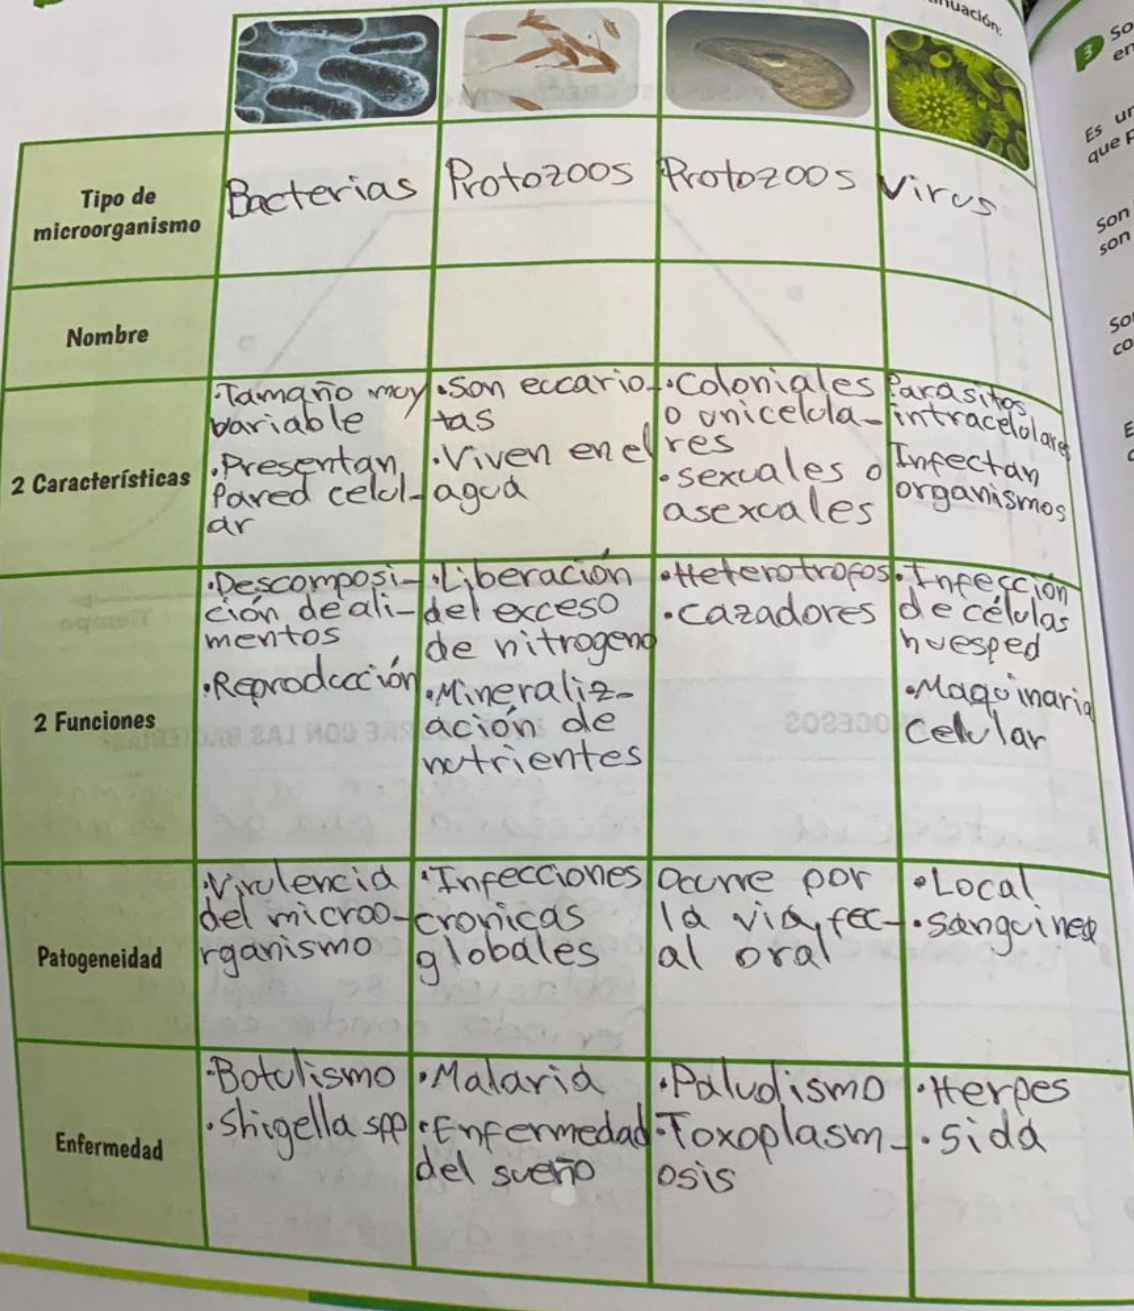 nuación:
3
So
en
Es un
que P
Son
son
So
co
Tipo de
microorganismo
Bacterias
Protozoos
Protozoos
Virus
Nombre
2 Características
•Tamaño muy
variable
•Presentan
Pared celul-
ar
•Son eccario-
tas
•Viven en el
agua
•Coloniales
o unicelula-
res
•sexuales o
asexuales
Parasitos
intracelolares
Infectan
organismos
2 Funciones
•Descomposi-
ción de ali-
mentos
•Reproducción
•Liberación
del exceso
de nitrogeno
•Mineraliz-
ación de
nutrientes
•Heterotrofos
•cazadores
•Infección
de células
huesped
•Maquinaria
celular
Patogeneidad
•Virulencia
del microo-
rganismo
•Infecciones
cronicas
globales
Ocurre por
la via, fec-
al oral
•Local
•sanguinea
Enfermedad
•Botulismo
•Shigella spp
•Malaria
•Enfermedad
del sueño
•Paludismo
•Toxoplasm-
osis
•Herpes
•sida